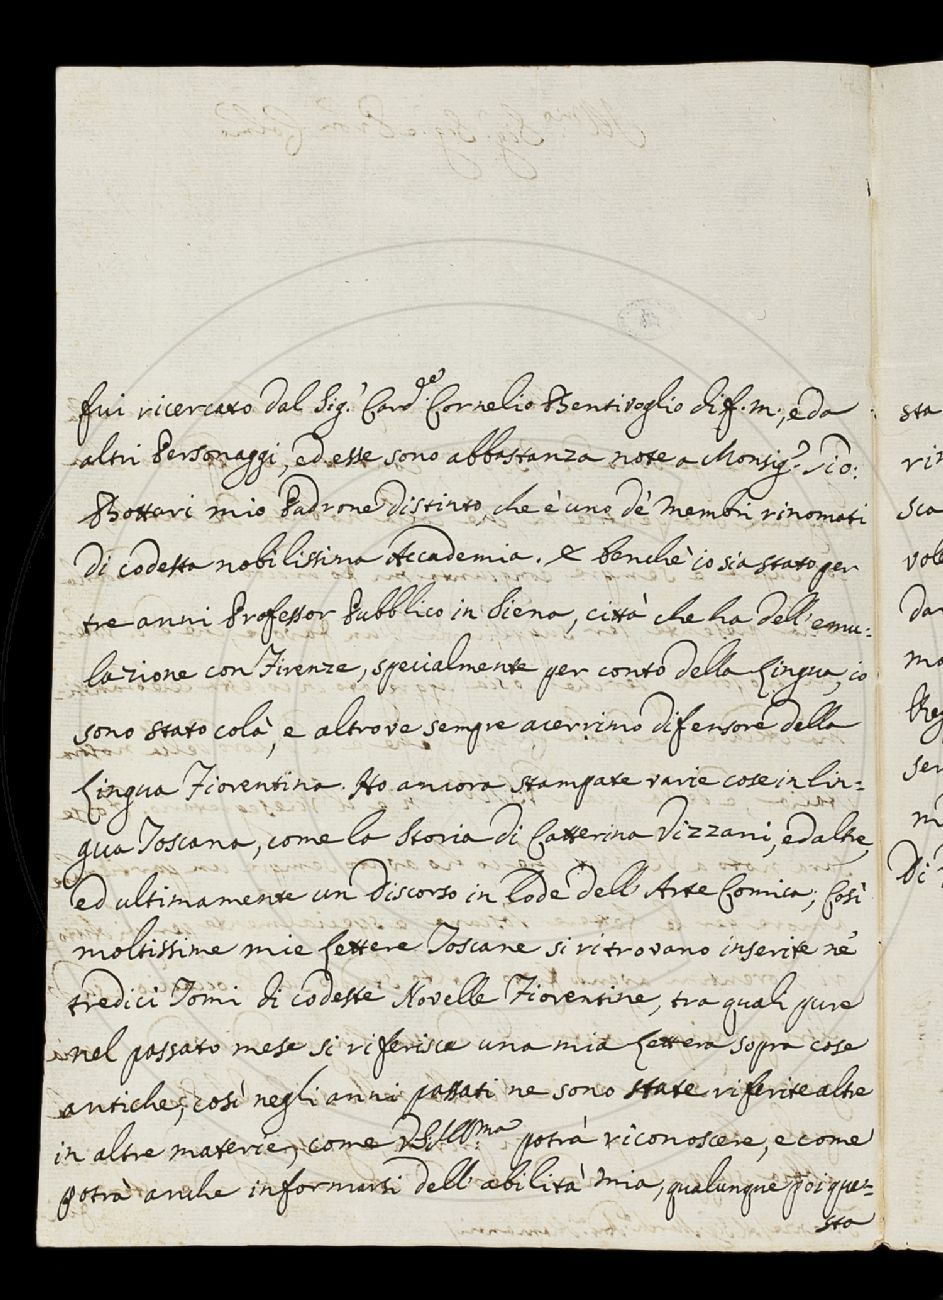 fui ricercato dal Sig.r Card.le Cornelio Bentivoglio di f. m., e da
altri Personaggi, ed esse sono abbastanza note a Monsig.r Gio:
Bottari mio Padrone distinto, che è uno de' membri rinomati
di codesta nobilissima Accademia. E benchè io sia stato per
tre anni Professor Pubblico in Siena, città che ha dell'emu-
lazione con Firenze, specialmente per conto della Lingua, io
sono stato colà, e altrove sempre acerrimo difensore della
Lingua Fiorentina. Ho ancora stampate varie cose in lin=
gua Toscana, come la Storia di Catterina Vizzani, ed altre,
ed ultimamente un Discorso in lode dell'Arte Comica; Così
moltissime mie Lettere Toscane si ritrovano inserite ne'
tredici Tomi di codeste Novelle Fiorentine, tra quali pure
nel passato mese si riferisce una mia Lettera sopra cose
antiche; così negli anni passati ne sono state riferite altre
in altre materie, come VS: Ill:ma potrà riconoscere, e come
potrà anche informarsi dell'abilità mia, qualunque poi que=
sta
sta
Sca
Di